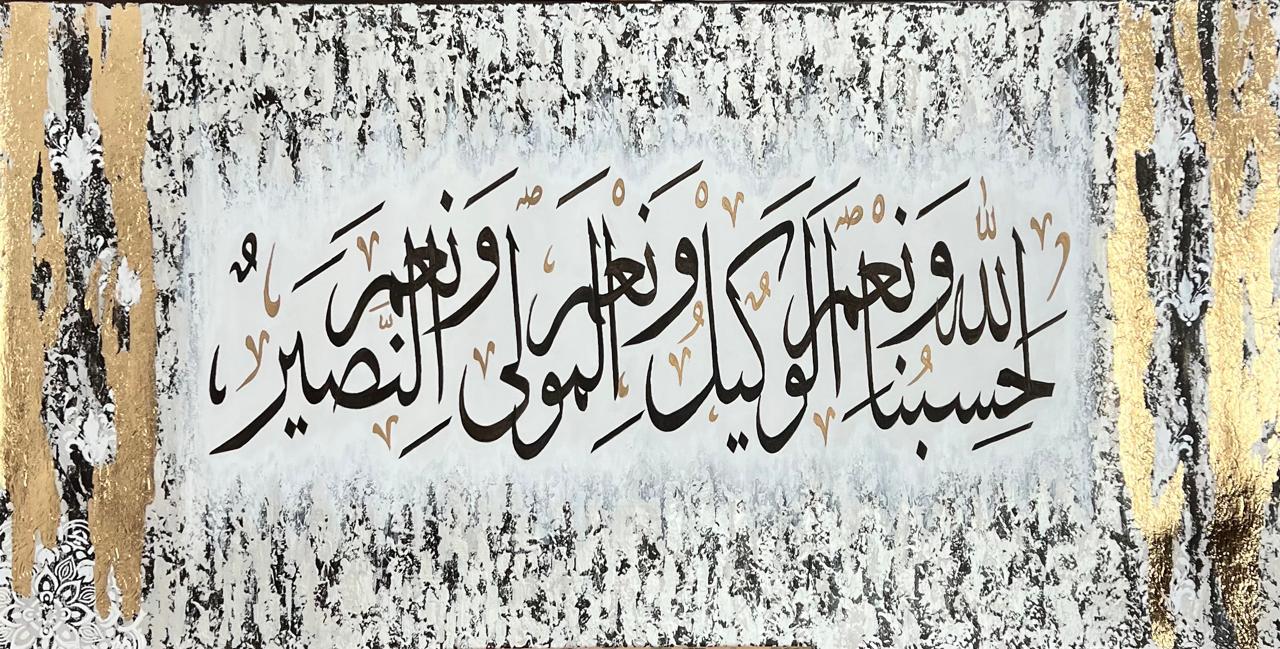 حَسْبُنَا اللّٰهُ وَنِعْمَ الْوَكِيلُ وَنِعْمَ الْمَوْلَى وَنِعْمَ النَّصِيرُ